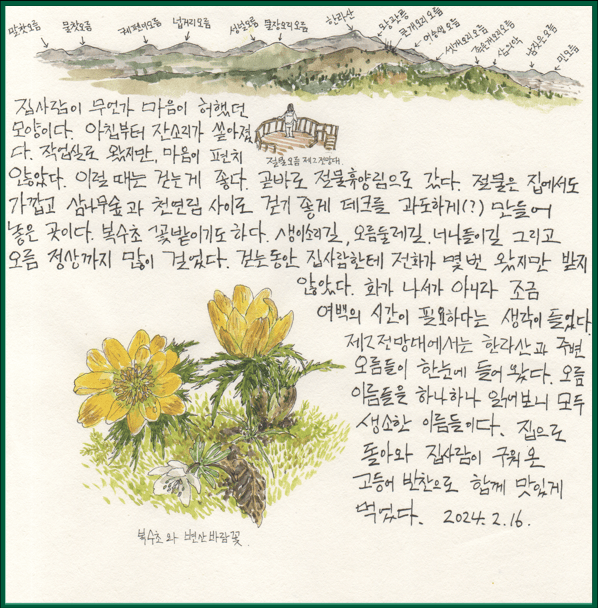 말찻오름 물찻오름 궤펜이오름 넙거리오름 성널오름 물장오리오름 한라산 왕관릉 큰개오리오름 어후오름 샛개오리오름 족은개오리오름 삼의악 민오름
집사람이 무언가 마음이 허했던
모양이다. 아침부터 잔소리가 쏟아졌
다. 작업실로 왔지만, 마음이 편치
절물오름 제2전망대
않았다. 이럴 때는 걷는게 좋다. 곧바로 절물휴양림으로 갔다. 절물은 집에서도
가깝고 삼나무숲과 천연림 사이로 걷기 좋게 데크를 과도하게(?) 만들어
놓은 곳이다. 복수초 꽃밭이기도하다. 생이소리길, 오름둘레길. 너나들이길 그리고
오름 정상까지 많이 걸었다. 걷는동안 집사람한테 전화가 몇번 왔지만 받지
않았다. 화가 나서가 아니라 조금
여백의 시간이 필요하다는 생각이 들었다.
제2전망대에서는 한라산과 주변
오름들이 한눈에 들어왔다. 오름
이름들을 하나하나 읽어보니 모두
생소한 이름들이다. 집으로
돌아와 집사람이 구워 온
고등어 반찬으로 함께 맛있게
먹었다. 2024. 2. 16.
복수초와 변산바람꽃.